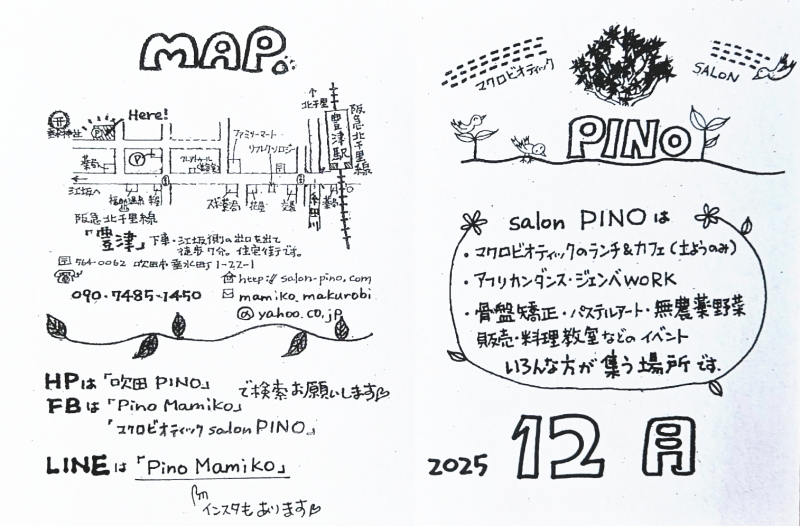 MAP.
Here!
北千里
阪急北千里線
豊津駅
ファミリーマート
リフレクソロジー
P
P
江坂へ
スギ薬局
花屋
交番
阪急北千里線
「豊津」下車・江坂側の出口を出て
徒歩7分。住宅街です。
564-0062 吹田市垂水町1-22-1
http://salon-pino.com
090-7485-1450
mamiko_makurobi
@yahoo.co.jp
HPは「吹田PINO」で検索お願いします
FBは「Pino Mamiko」
「マクロビオティックsalon PINO」
LINEは「Pino Mamiko」
インスタもあります
マクロビオティック
SALON
PINO
salon PINOは
・マクロビオティックのランチ&カフェ(土ようのみ)
・アフリカンダンス・ジェンベWORK
・骨盤矯正・パステルアート・無農薬野菜
販売・料理教室などのイベント
いろんな方が集う場所です.
2025 12月